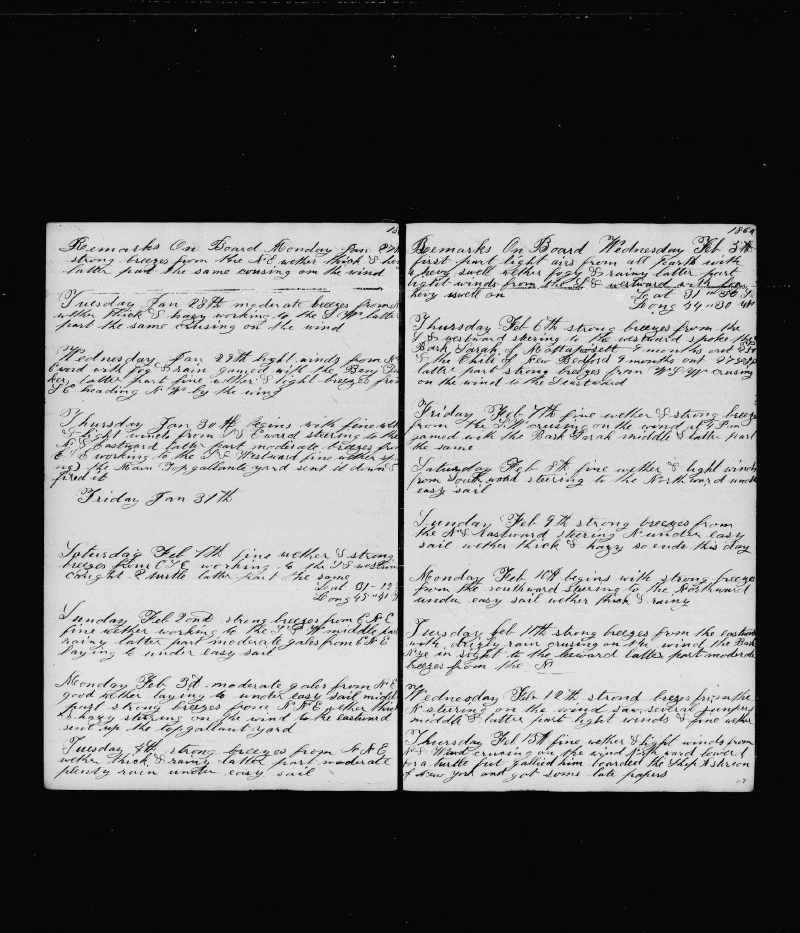 Remarks On Board Monday Jan 27th
strong breezes from the N E wether thick &
latter part the same crusing on the wind
Tuesday Jan 28th moderate breezes from
wether thick & hazy working to the S W latter
part the same crusing on the wind
Wednesday Jan 29th light winds from N
E ward with fog & rain gamed with the Benj
ker, latter part fine wether & light breezes from
S E heading N W by the wind
Thursday Jan 30th begins with fine
& light winds from S E ward steering to the
N & Eastward latter part moderate breezes from
E S E working to the S & Westward fine wether
ng the Main Top gallante yard sent it down &
fixed it
Friday Jan 31th
Saturday Feb 1th fine wether & strong
breezes from E S E working to the S & westward
caught 2 turtle latter part the same
Lat 31-12
Long 45"41
Sunday Feb 2nd strong breezes from E N E
fine wether working to the S & W middle part
rainy latter part moderate gales from E N E
laying to under easy sail
Monday Feb 3d moderate gales from N E
good wether laying to under easy sail middle
part strong breezes from N N E wether thick
& hazy stering on the wind to the eastward
sent up the topgallant yard
Tuesday 4th strong breezes from N N E
wether thick & rainy latter part moderate
plenty rain under easy sail
186
Remarks On Board Wednesday Feb 5th
first part light airs from all parts with
a hevy swell wether fogy & rainy latter part
light winds from the S & westward with
hevy swell on
Lat 31"
Long 44"30
Thursday Feb 6th strong breezes from the
S & westward stering to the westward spoke the
Bark Sarah of Mattapoisett 9 months out
& the Chili of New Bedford 9 months out
latter part strong breezes from W S W crusing
on the wind to the Southward
Friday Feb 7th fine wether & strong breezes
from the S W crusing on the wind at 4 Pm
gamed with the Bark Sarah middle & latter part
the same
Saturday Feb 8th fine wether & light winds
from South ward steering to the North ward under
easy sail
Sunday Feb 9th strong breezes from
the N & Eastward steering N under easy
sail wether thick & hazy so ends this day
Monday Feb 10th begins with strong breezes
from the southward steering to the Northward
under easy sail wether thick & rainy
Tuesday feb 11th strong breezes from the eastward
with drizly rain crusing on the wind the Bark
in sight to the leeward latter part moderate
breezes from the N
Wednesday Feb 12th strong breezes from the
N steering on the wind saw several
middle & latter part light winds & fine wether
Thursday Feb 13th fine wether & light winds from
N & Ward crusing on the wind North ward lowered
for a turtle but gallied him boarded the Ship
of New York and got some late papers